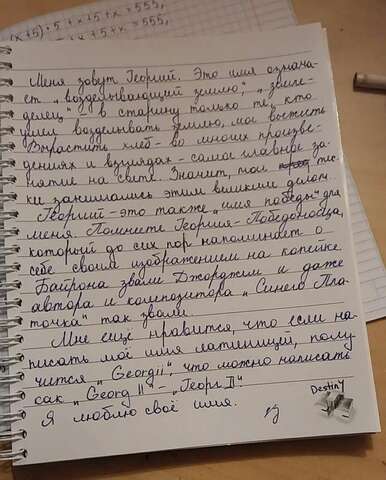 (x+5)·5+x+5+x=555,
+x+x=555,
Меня зовут Георгий. Это имя означа-
ет „возделывающий землю", „земле-
делец" - в старину только те, кто
умел возделывать землю, мог вы
Взрастить хлеб - во многих произве-
дениях и взглядах - самое главное за-
нятие на свете. Значит, мои
ки занимались этим великим делом.
Георгий - это также „имя победы" для
меня. Помните Георгия-Победоносца,
который до сих пор напоминает о
себе своим изображением на копейке.
Байрона звали Джорджем и даже
автора и композитора „Синего Пла-
точка" так звали.
Мне ещё нравится, что если на-
писать моё имя латиницей, полу-
чится „Georgii", что можно написать
как „Georg II" - „Георг II"
Я люблю своё имя.
Destiny